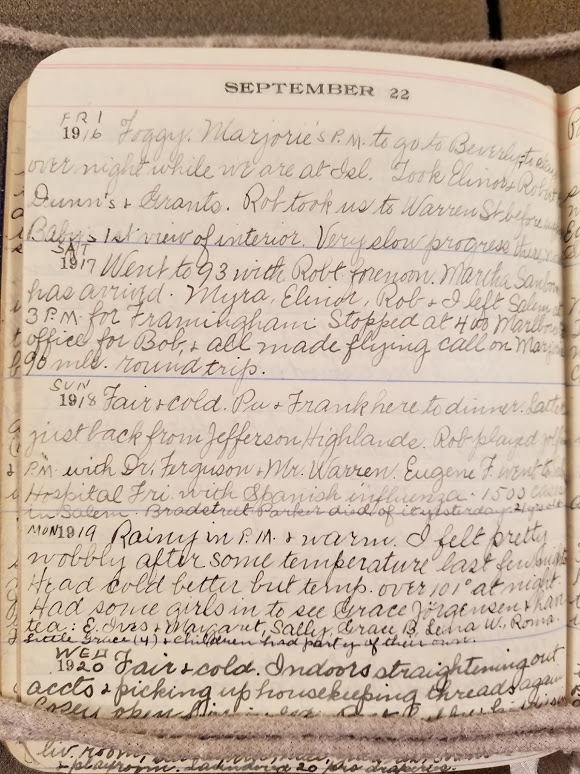 SEPTEMBER 22
FRI
1916 Foggy. Marjorie's P.M. to go to Beverly,
over night while we are at Isl. Took Elinor &
Dunn's & Grants. Rob took us to Warren St. before
Baby's 1st view of interior. Very slow progress there.
SAT
1917 Went to 93 with Robt forenoon. Martha Sanborn
has arrived. Myra, Elinor, Rob & I left Salem at
3 P.M. for Framingham. Stopped at 400 Marlboro
office for Bob, & all made flying call on
90 mls. round trip.
SUN
1918 Fair & cold. Pu & Frank here to dinner. Latter
just back from Jefferson Highlands. Rob played golf
P.M. with Dr. Ferguson & Mr. Warren. Eugene F. went to
Hospital Fri. with Spanish influenza - 1500 cases
in Salem Bradstreet Parker died of it yesterday
MON 1919 Rainy in P.M. & warm. I felt pretty
wobbly after some temperature last few nights
Head cold better but temp. over 101° at night
Had some girls in to see Grace Jorgensen & have
tea: E. Ives & Margaret, Sally, Grace B, Lena W. Roma.
Little Grace (4) & children had party of their own.
WED
1920 Fair & cold. Indoors straightening out
accts & picking up housekeeping threads again
liv. room,
& playroom.